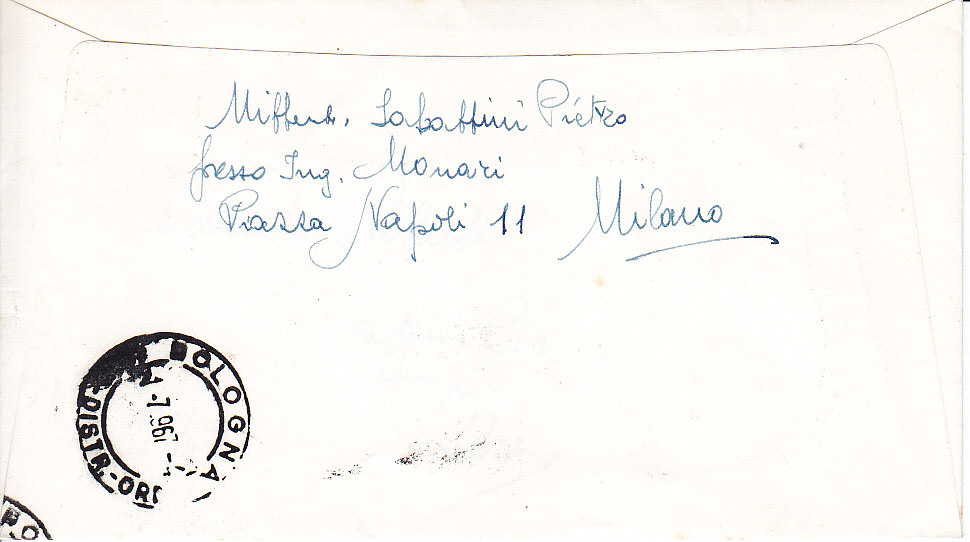 Mittent. Sabattini Piétro
presso Ing. Monari
Piazza Napoli 11 Milano
BOLOGNA
DISTR.-OR
BO